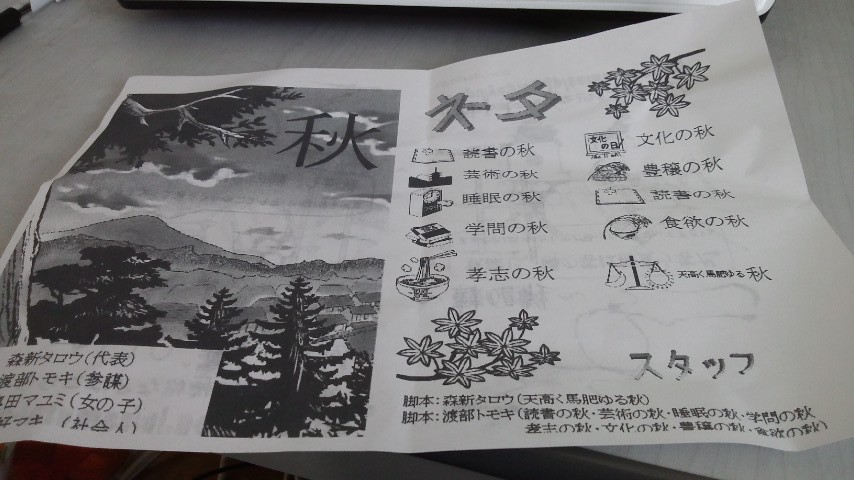 秋
森新タロウ(代表)
渡部トモキ(参謀)
田マユミ(女の子)
マキ (社会人)
ネタ
読書の秋
芸術の秋
睡眠の秋
学問の秋
孝志の秋
文化の日
文化の秋
豊穣の秋
読書の秋
食欲の秋
天高く馬肥ゆる秋
スタッフ
脚本:森新タロウ(天高く馬肥ゆる秋)
脚本:渡部トモキ(読書の秋・芸術の秋・睡眠の秋・学問の秋
孝志の秋・文化の秋・豊穣の秋・食欲の秋)